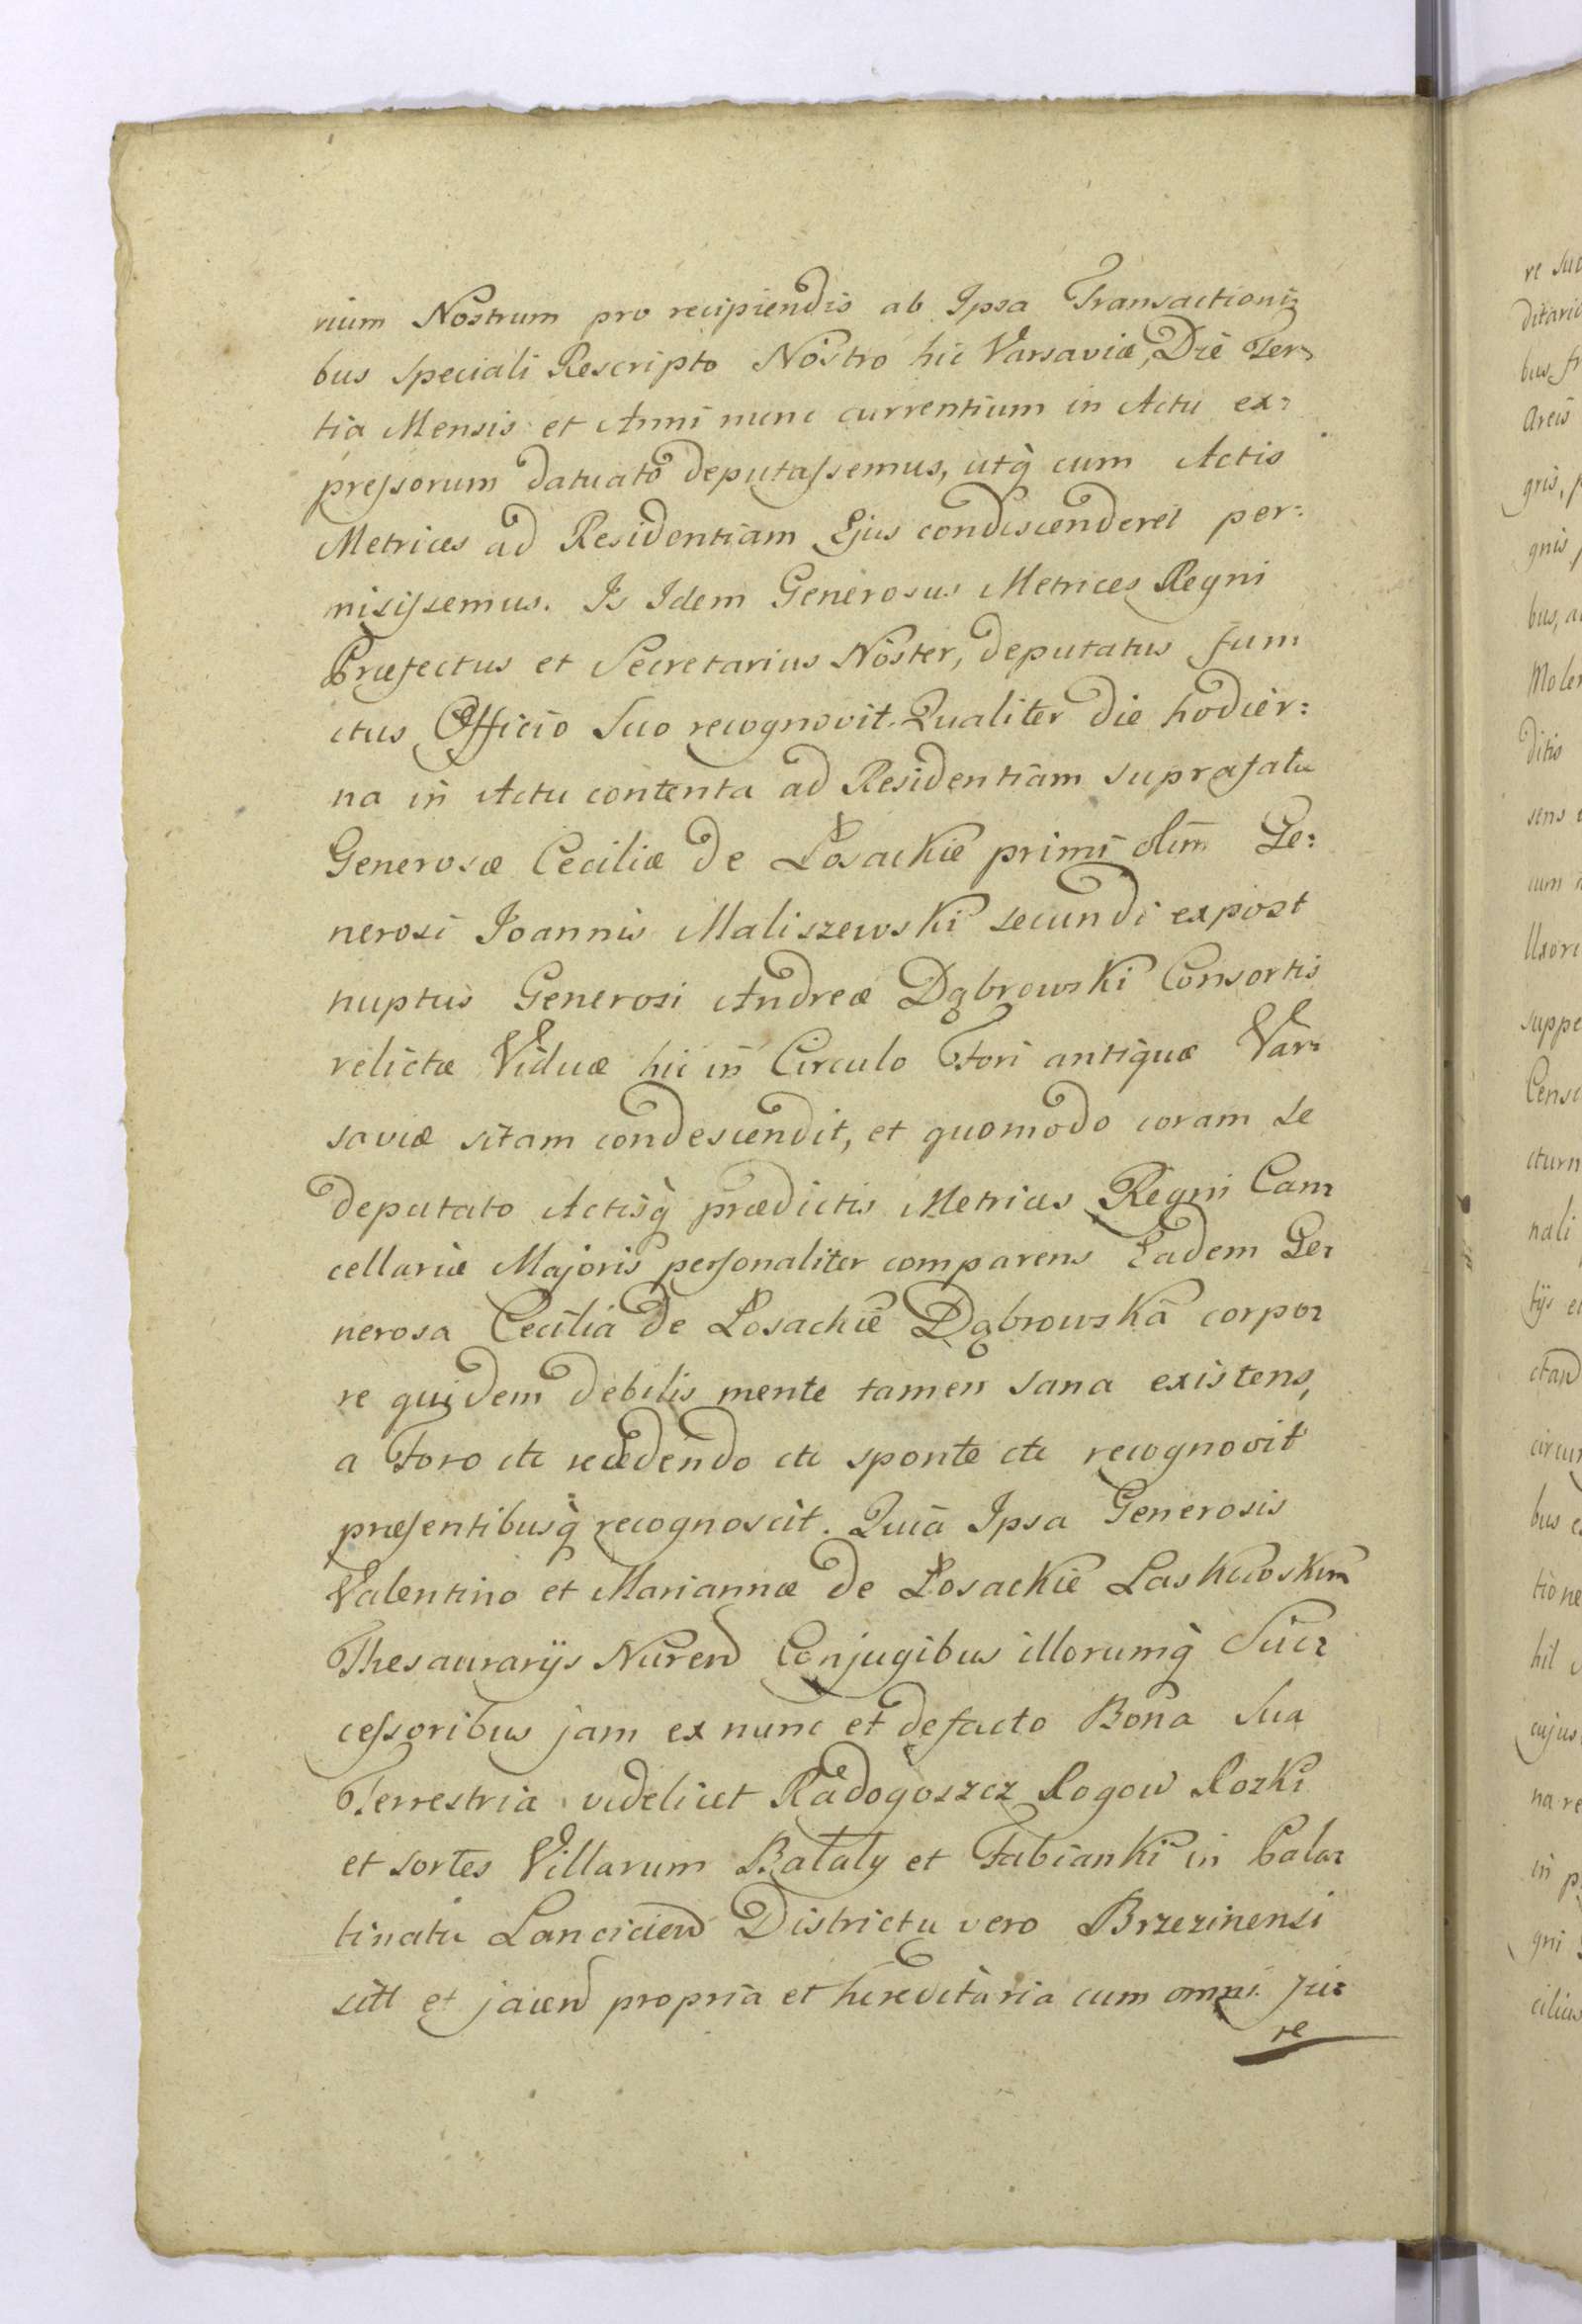 rium Nostrum pro recipiendis ab Ipsa Transactioni=
bus speciali Rescripto Nostro hic Varsaviæ, Die Ter=
tia Mensis et Anni nunc currentium in Actu ex=
preſsorum datuato deputaſsemus, utq̀ cum Actis
Metrices ad Residentiam Ejus condiscenderet per=
misiſsemus. Is Idem Generosus Metrices Regni
Præfectus et Secretarius Noster, deputatus fun
ctus Officio Suo recognovit. Qualiter die hodier=
na in Actu contenta ad Residentiam suprafatæ
Generosæ Ceciliæ de Łosackie primi olim Ge=
nerosi Joannis Maliszewski secundi expost
nuptus Generosi Andreæ Dąbrowski Consortis
relictæ Viduæ hic in Circulo Fori antiquæ Var=
saviæ sitam condescendit, et quomodo coram se
deputato Actisq̀ prædictis Metrices Regni Can=
cellariæ Majoris perſonaliter comparens Eadem Ge=
nerosa Cecilia de Łosackie Dąbrowska corpo=
re quidem debilis mente tamen sana existens,
a Foro etc recedendo etc sponte etc recognovit
præſentibusq̀ recognoscit. Quia Ipsa Generosis
Valentino et Mariannæ de Łosackie Laskowskim
Thesaurarijs Nuren Conjugibus illorumq̀ Suc=
ceſsoribus jam ex nunc et defacto Bona Sua
Terrestria videlicet Radogoszcz Rogow Rozki
et sortes Villarum Bałaly et Fabianki in Pala=
tinatu Lancicien Districtu vero Brzezinensi
sitt et jacen propria et hereditaria cum omni Ju=
re